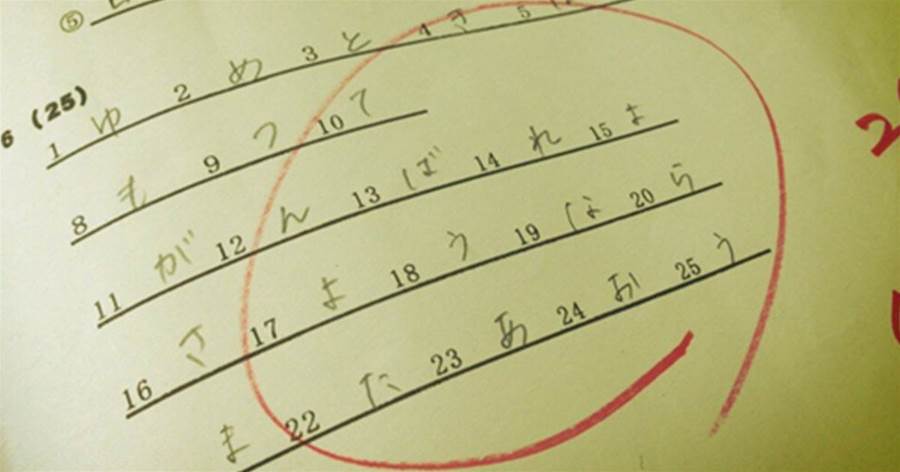 ⑤
6 (25)
1 ゆ 2 め 3 と 4 き 5
8 も 9 つ 10 て
11 が 12 ん 13 ば 14 れ 15 よ
16 さ 17 よ 18 う 19 な 20 ら
ま 22 た 23 あ 24 お 25 う